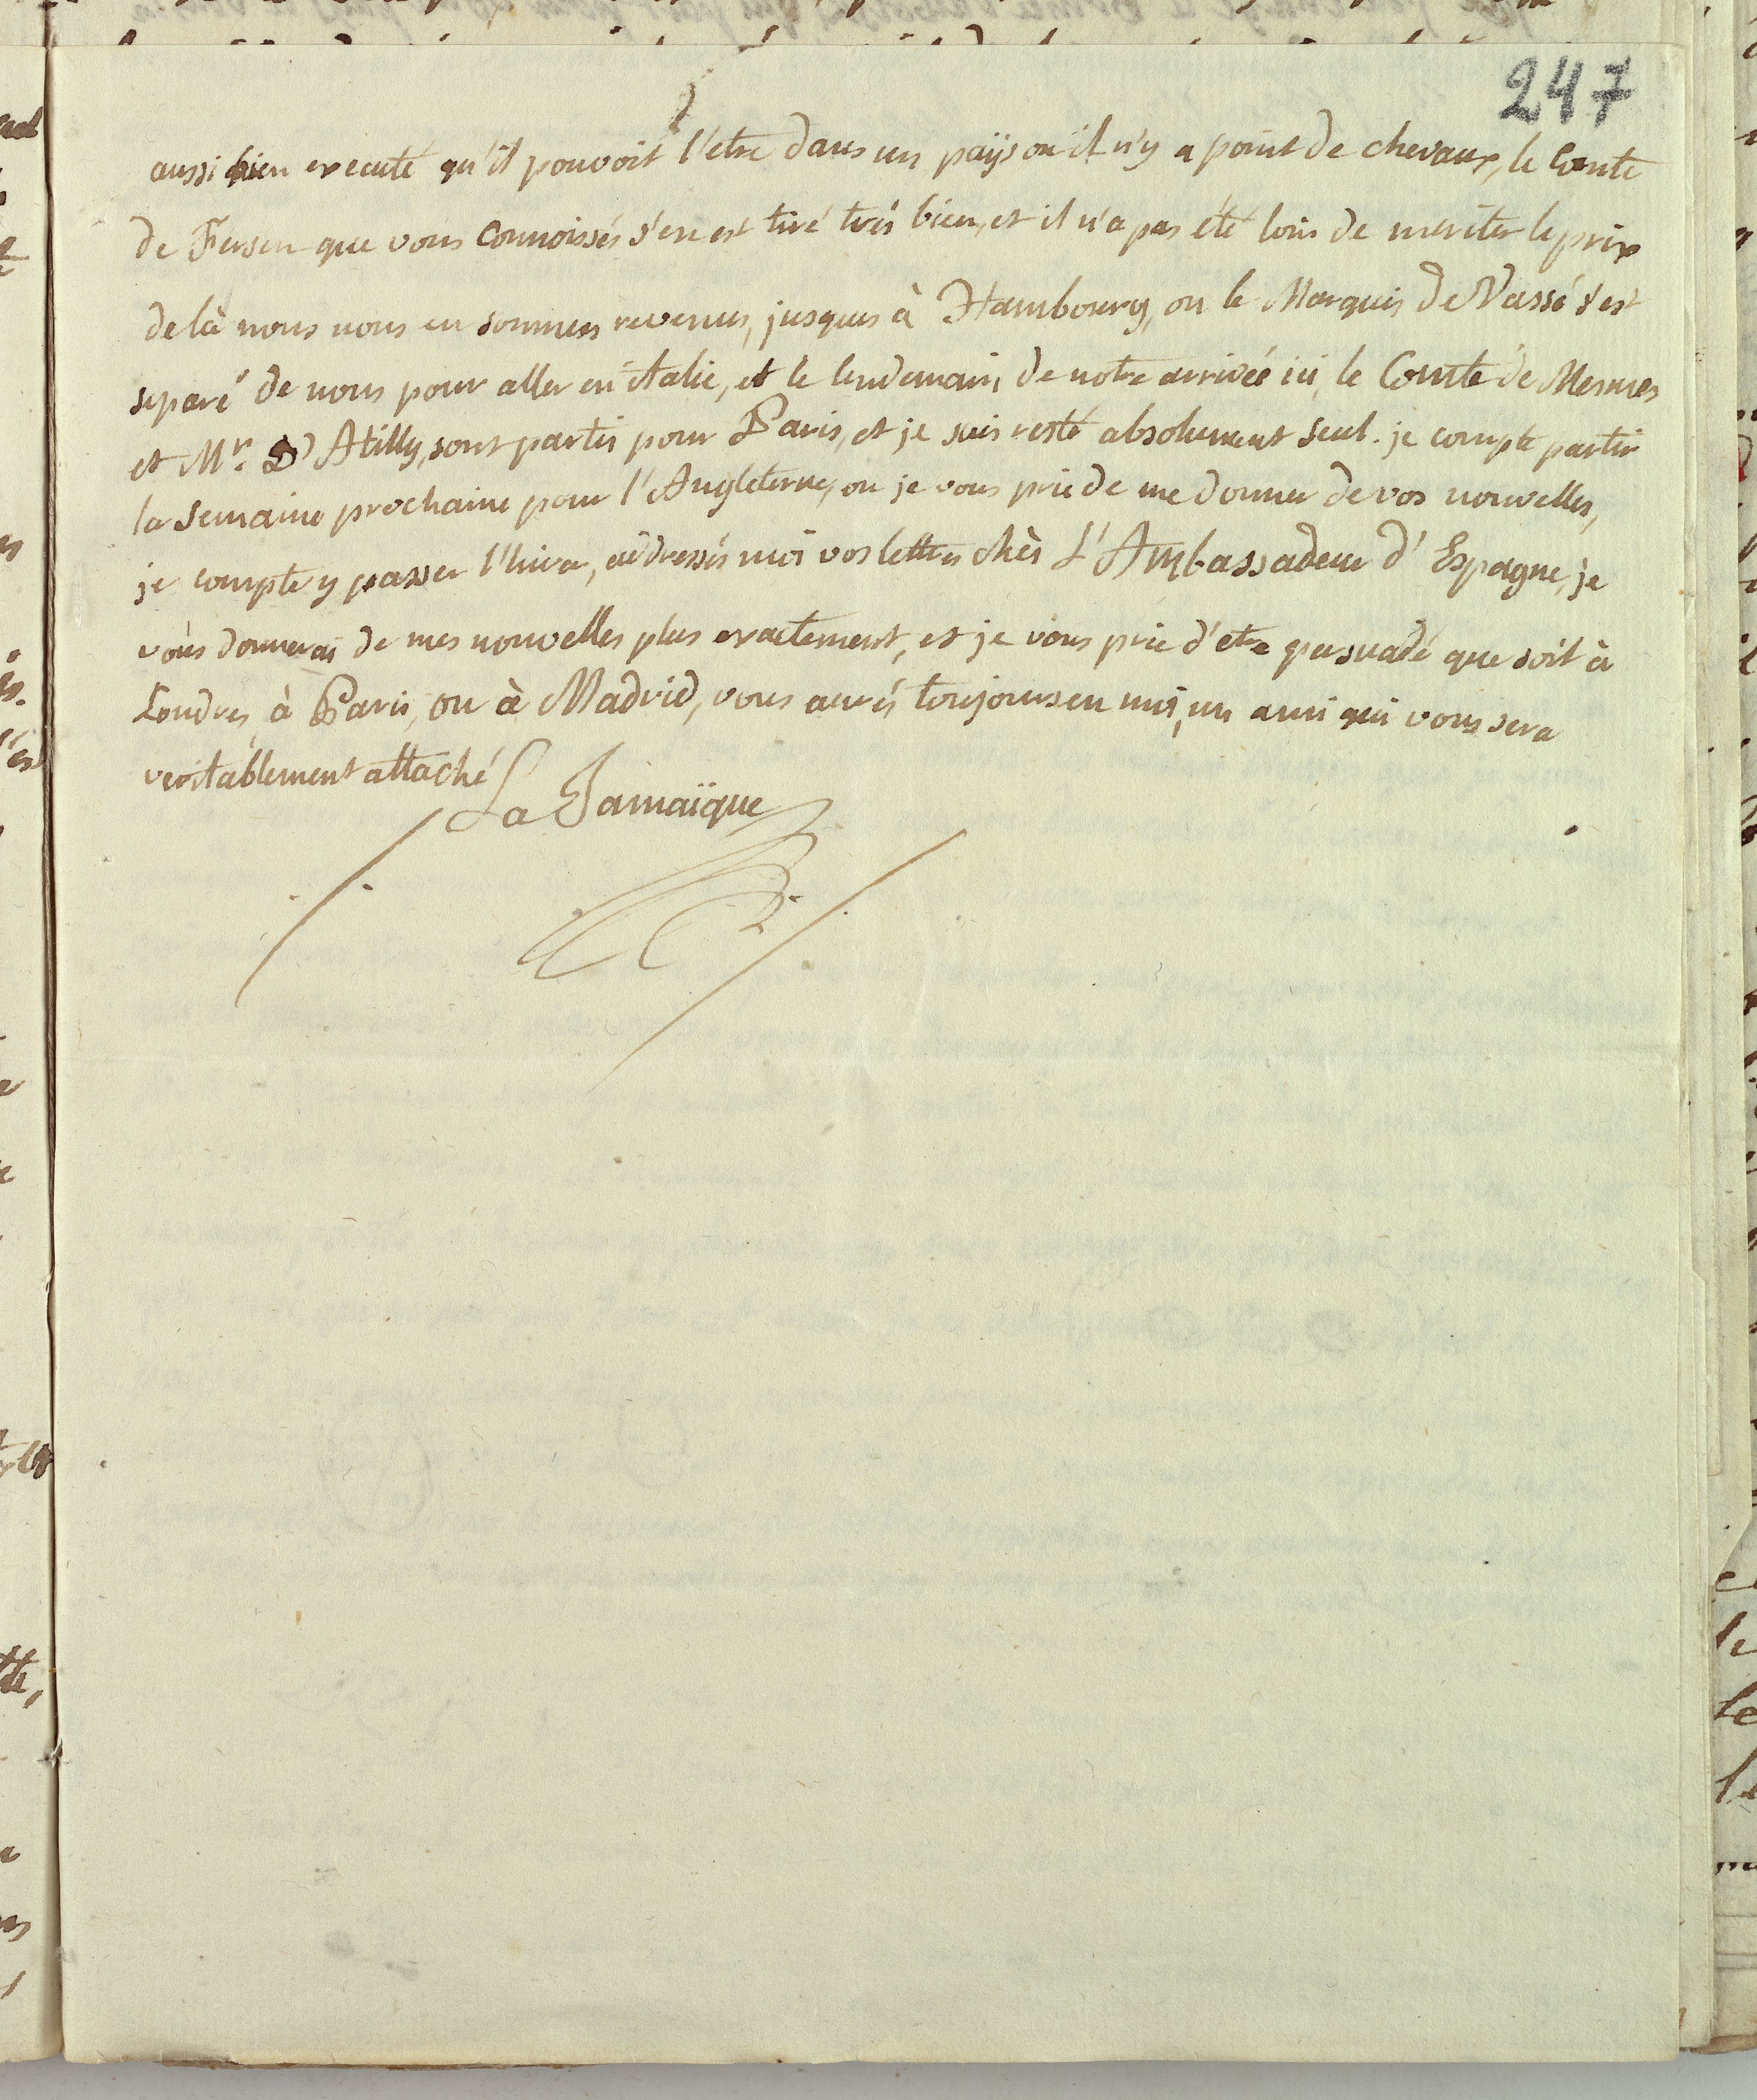 247
aussi bien executé qu'il pouvoit l'etre dans un paÿs ou il n'y a point de chevaux, le Comte
de Fersen que vous connoissés s'en est tiré trés bien, et il n'a pas été loin de meriter le prix
de là nous nous en sommes revenus, jusques à Hambourg, ou le Marquis de Vassé s'est
separé de nous pour aller en italie, et le lendemain, de notre arrivée ici, le Comte de Mesmes
et Mr. D'Atilly, sont partis pour Paris, et je suis resté absolument seul. je compte partir
la semaine prochaine pour l'Angleterre, ou je vous prie de me donner de vos nouvelles,
je compte y passer l'hiver, addressés moi vos lettres chés L'Ambassadeur d'Espagne, je
vous donnerai de mes nouvelles plus exactement, et je vous prie d'etre persuadé que soit à
Londres, à Paris, ou à Madrid, vous aurés toujours en moi, un ami qui vous sera
veritablement attaché
La Jamaïque